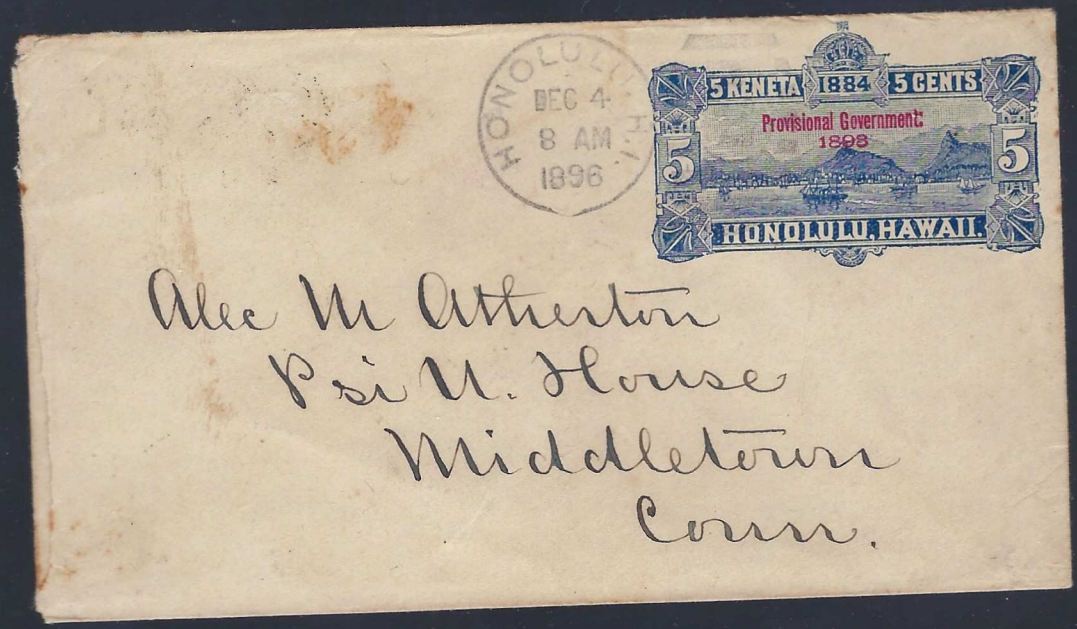 HONOLULU H.I.
DEC 4
8 AM
1896
5 KENETA 1884 5 CENTS
Provisional Government
1893
5 5
HONOLULU, HAWAII.
Alec M Atherton
Psi U. House
Middletown
Conn.